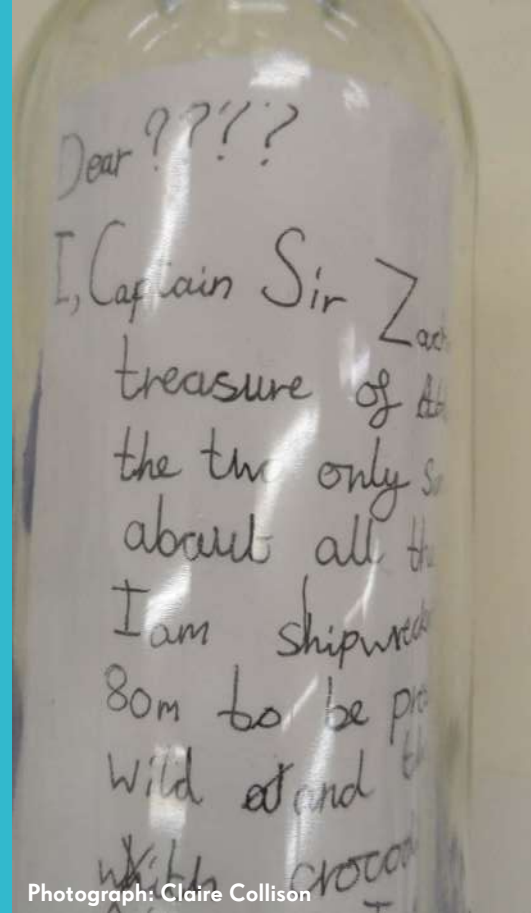 Dear ????
I, Captain Sir Zach
treasure of
the two only
about all th
I am shipwreck
80m to be pr
wild and th
with crocod
Photograph: Claire Collison